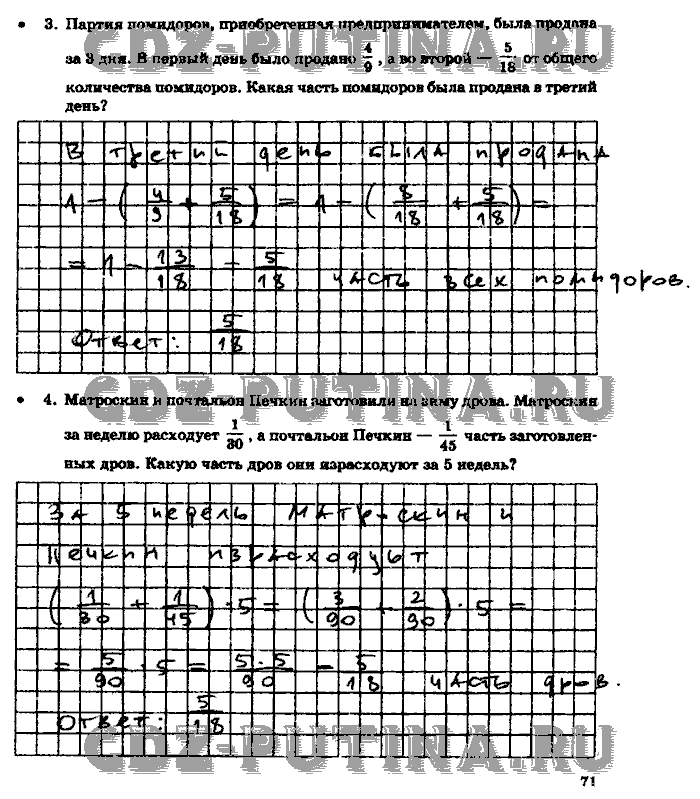 3. Партия помидоров, приобретенная предпринимателем, была продана
за 3 дня. В первый день было продано 4/9, а во второй — 5/18 от общего
количества помидоров. Какая часть помидоров была продана в третий
день?
В третий день была продана
1 - (4/9 + 5/18) = 1 - (8/18 + 5/18) =
= 1 - 13/18 = 5/18 часть всех помидоров.
Ответ: 5/18
4. Матроскин и почтальон Печкин заготовили на зиму дрова. Матроскин
за неделю расходует 1/30, а почтальон Печкин — 1/45 часть заготовлен-
ных дров. Какую часть дров они израсходуют за 5 недель?
За 5 недель Матроскин и
Печкин израсходуют
(1/30 + 1/45) · 5 = (3/90 + 2/90) · 5 =
= 5/90 · 5 = 5·5/90 = 5/18 часть дров.
Ответ: 5/18
71
GDZ-PUTINA.RU
GDZ-PUTINA.RU
GDZ-PUTINA.RU